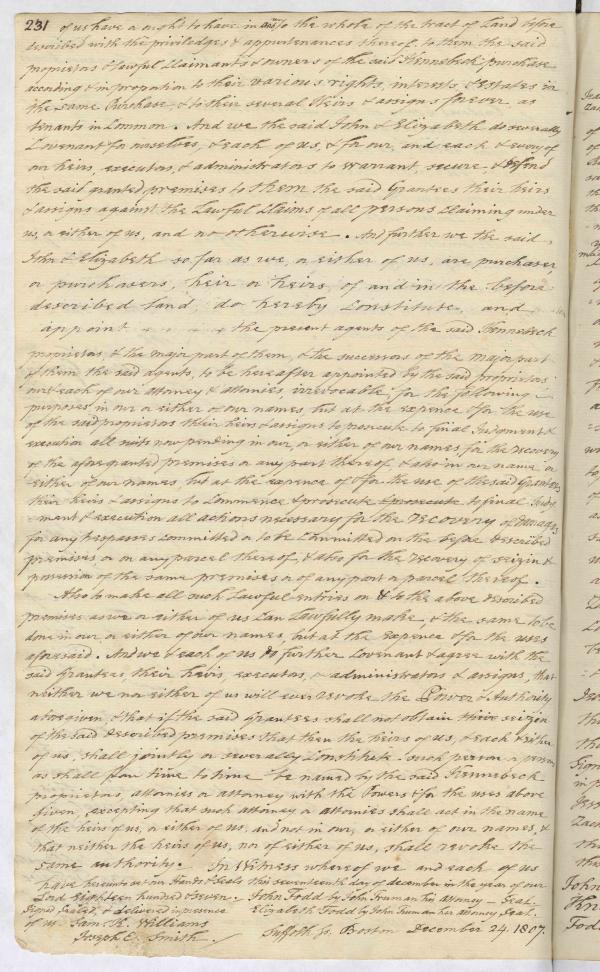 231 of us have or ought to have in and to the whole of the tract of Land before
described with the priviledges & appurtenances thereof to them the said
proprietors & lawful Claimants & owners of the said Kennebeck purchase
according & in proportion to their various rights, interests & Estates in
the same Purchase, & to their several Heirs & assigns forever as
tenants in Common. And we the said John & Elizabeth do severally
Covenant for ourselves, & each of us, & for our, and each & every of
our heirs, executors, & administrators to warrant, secure & defend
the said granted premises to them the said Grantees their heirs
& assigns against the Lawful Claims of all persons claiming under
us, or either of us, and no otherwise. And further we the said
John & Elizabeth so far as we, or either of us, are purchaser
or purchasers, heir or heirs, of and in the before
described land, do hereby Constitute, and
appoint the present agents of the said Kennebeck
proprietors, & the major part of them, & the successors of the major part
of them the said agents, to be hereafter appointed by the said proprietors
our & each of our attorney & attornies, irrevocable, for the following
purposes in our or either of our names, but at the expence & for the use
of the said proprietors their heirs & assigns to prosecute to final Judgment &
execution all suits now pending in our, or either of our names, for the recovery
of the aforegranted premises or any part thereof, & also in our name or
either of our names, but at the expence of & for the use of the said Grantees,
their heirs & assigns to Commence & prosecute & prosecute to final Judg
ment & execution all actions necessary for the recovery of Damages
for any trespasses committed or to be Committed on the before described
premises, or on any parcel thereof, & also for the recovery of seizin &
possession of the same premises or of any part or parcel thereof.
Also to make all such Lawful entries on & to the above described
premises as we or either of us Can Lawfully make, & the same to be
done in our, or either of our names, but at the expence & for the uses
aforesaid. And we & each of us do further Covenant & agree with the
said Grantees, their heirs, executors, or administrators & assigns, that
neither we nor either of us will ever revoke the Power & Authority
above given, & that if the said Grantees shall not obtain their seizen
of the said described premises that then the heirs of us, & each & either
of us, shall jointly or severally Constitute such person or persons
as shall from time to time be named by the said Kennebeck
proprietors, attornies or attorney with the Powers & for the uses above
given, excepting that such attorney or attornies shall act in the name
of the heirs of us, or either of us, and not in our, or either of our names, &
that neither the heirs of us, nor of either of us, shall revoke the
same authority. In Witness whereof we and each of us
have hereunto set our Hands & Seals this seventeenth day of december in the year of our
Lord eighteen hundred & seven. John Todd by John Truman his attorney - Seal.
Signed Sealed, & delivered in presence Elizabeth Todd by John Truman her attorney Seal.
of us Sam K. Williams
Joseph E. Smith. Suffolk ss. Boston December 24. 1807.